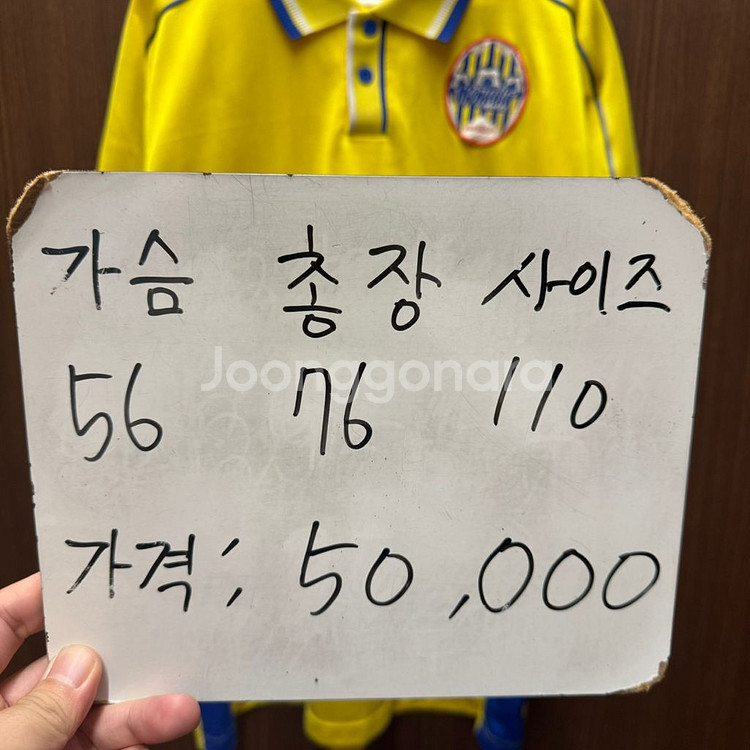 가슴 총장 사이즈
56 76 110
Joonggonara
가격; 50,000